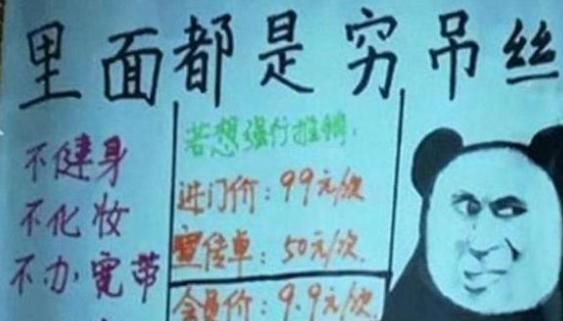 里面都是穷吊丝
不健身
不化妆
不办宽带
若想强行推销,
进门价:99元/次
宣传单:50元/次.
会员价:9.9元/次